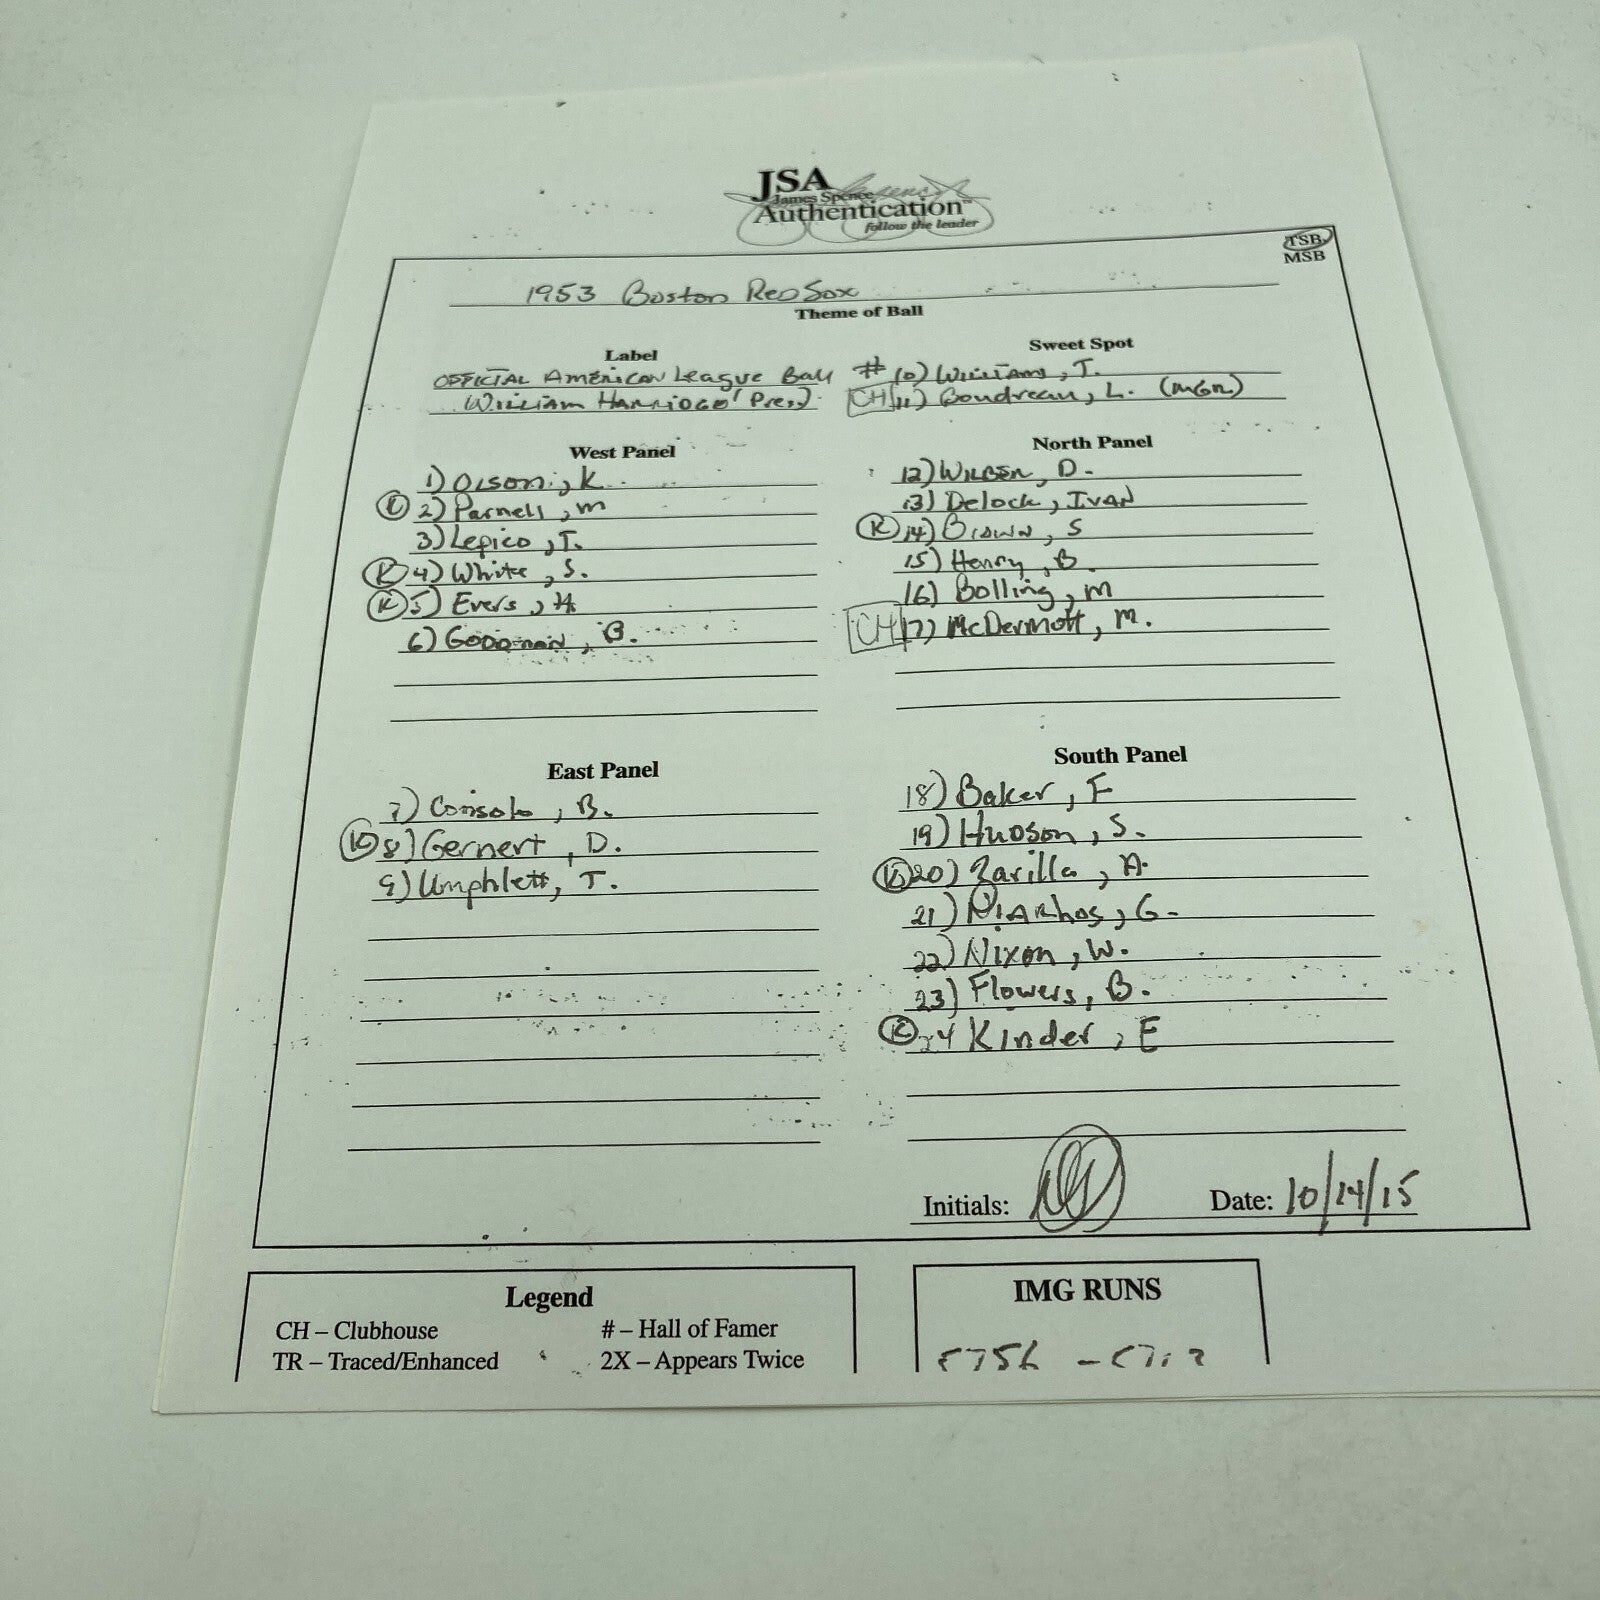 JSA
James Spence
Authentication™
follow the leader
TSB
MSB
1953 Boston Red Sox
Theme of Ball
Label
OFFICIAL American League Ball
William Harridge Pres.
Sweet Spot
# 10) Williams, T.
CH 11) Boudreau, L. (MGR)
West Panel
1) Olson, K.
K 2) Parnell, M
3) Lepcio, T.
K 4) White, S.
K 5) Evers, H.
6) Goodman, B.
North Panel
12) Wilber, D.
13) Delock, IVAN
K 14) Brown, S
15) Henry, B.
16) Bolling, M
CH 17) McDermott, M.
East Panel
7) Consolo, B.
K 8) Gernert, D.
9) Umphlett, T.
South Panel
18) Baker, F
19) Hudson, S.
K 20) Zarilla, A.
21) Niarhos, G.
22) Nixon, W.
23) Flowers, B.
K 24 Kinder, E
Initials:
Date: 10/14/15
Legend
CH – Clubhouse
# – Hall of Famer
TR – Traced/Enhanced
2X – Appears Twice
IMG RUNS